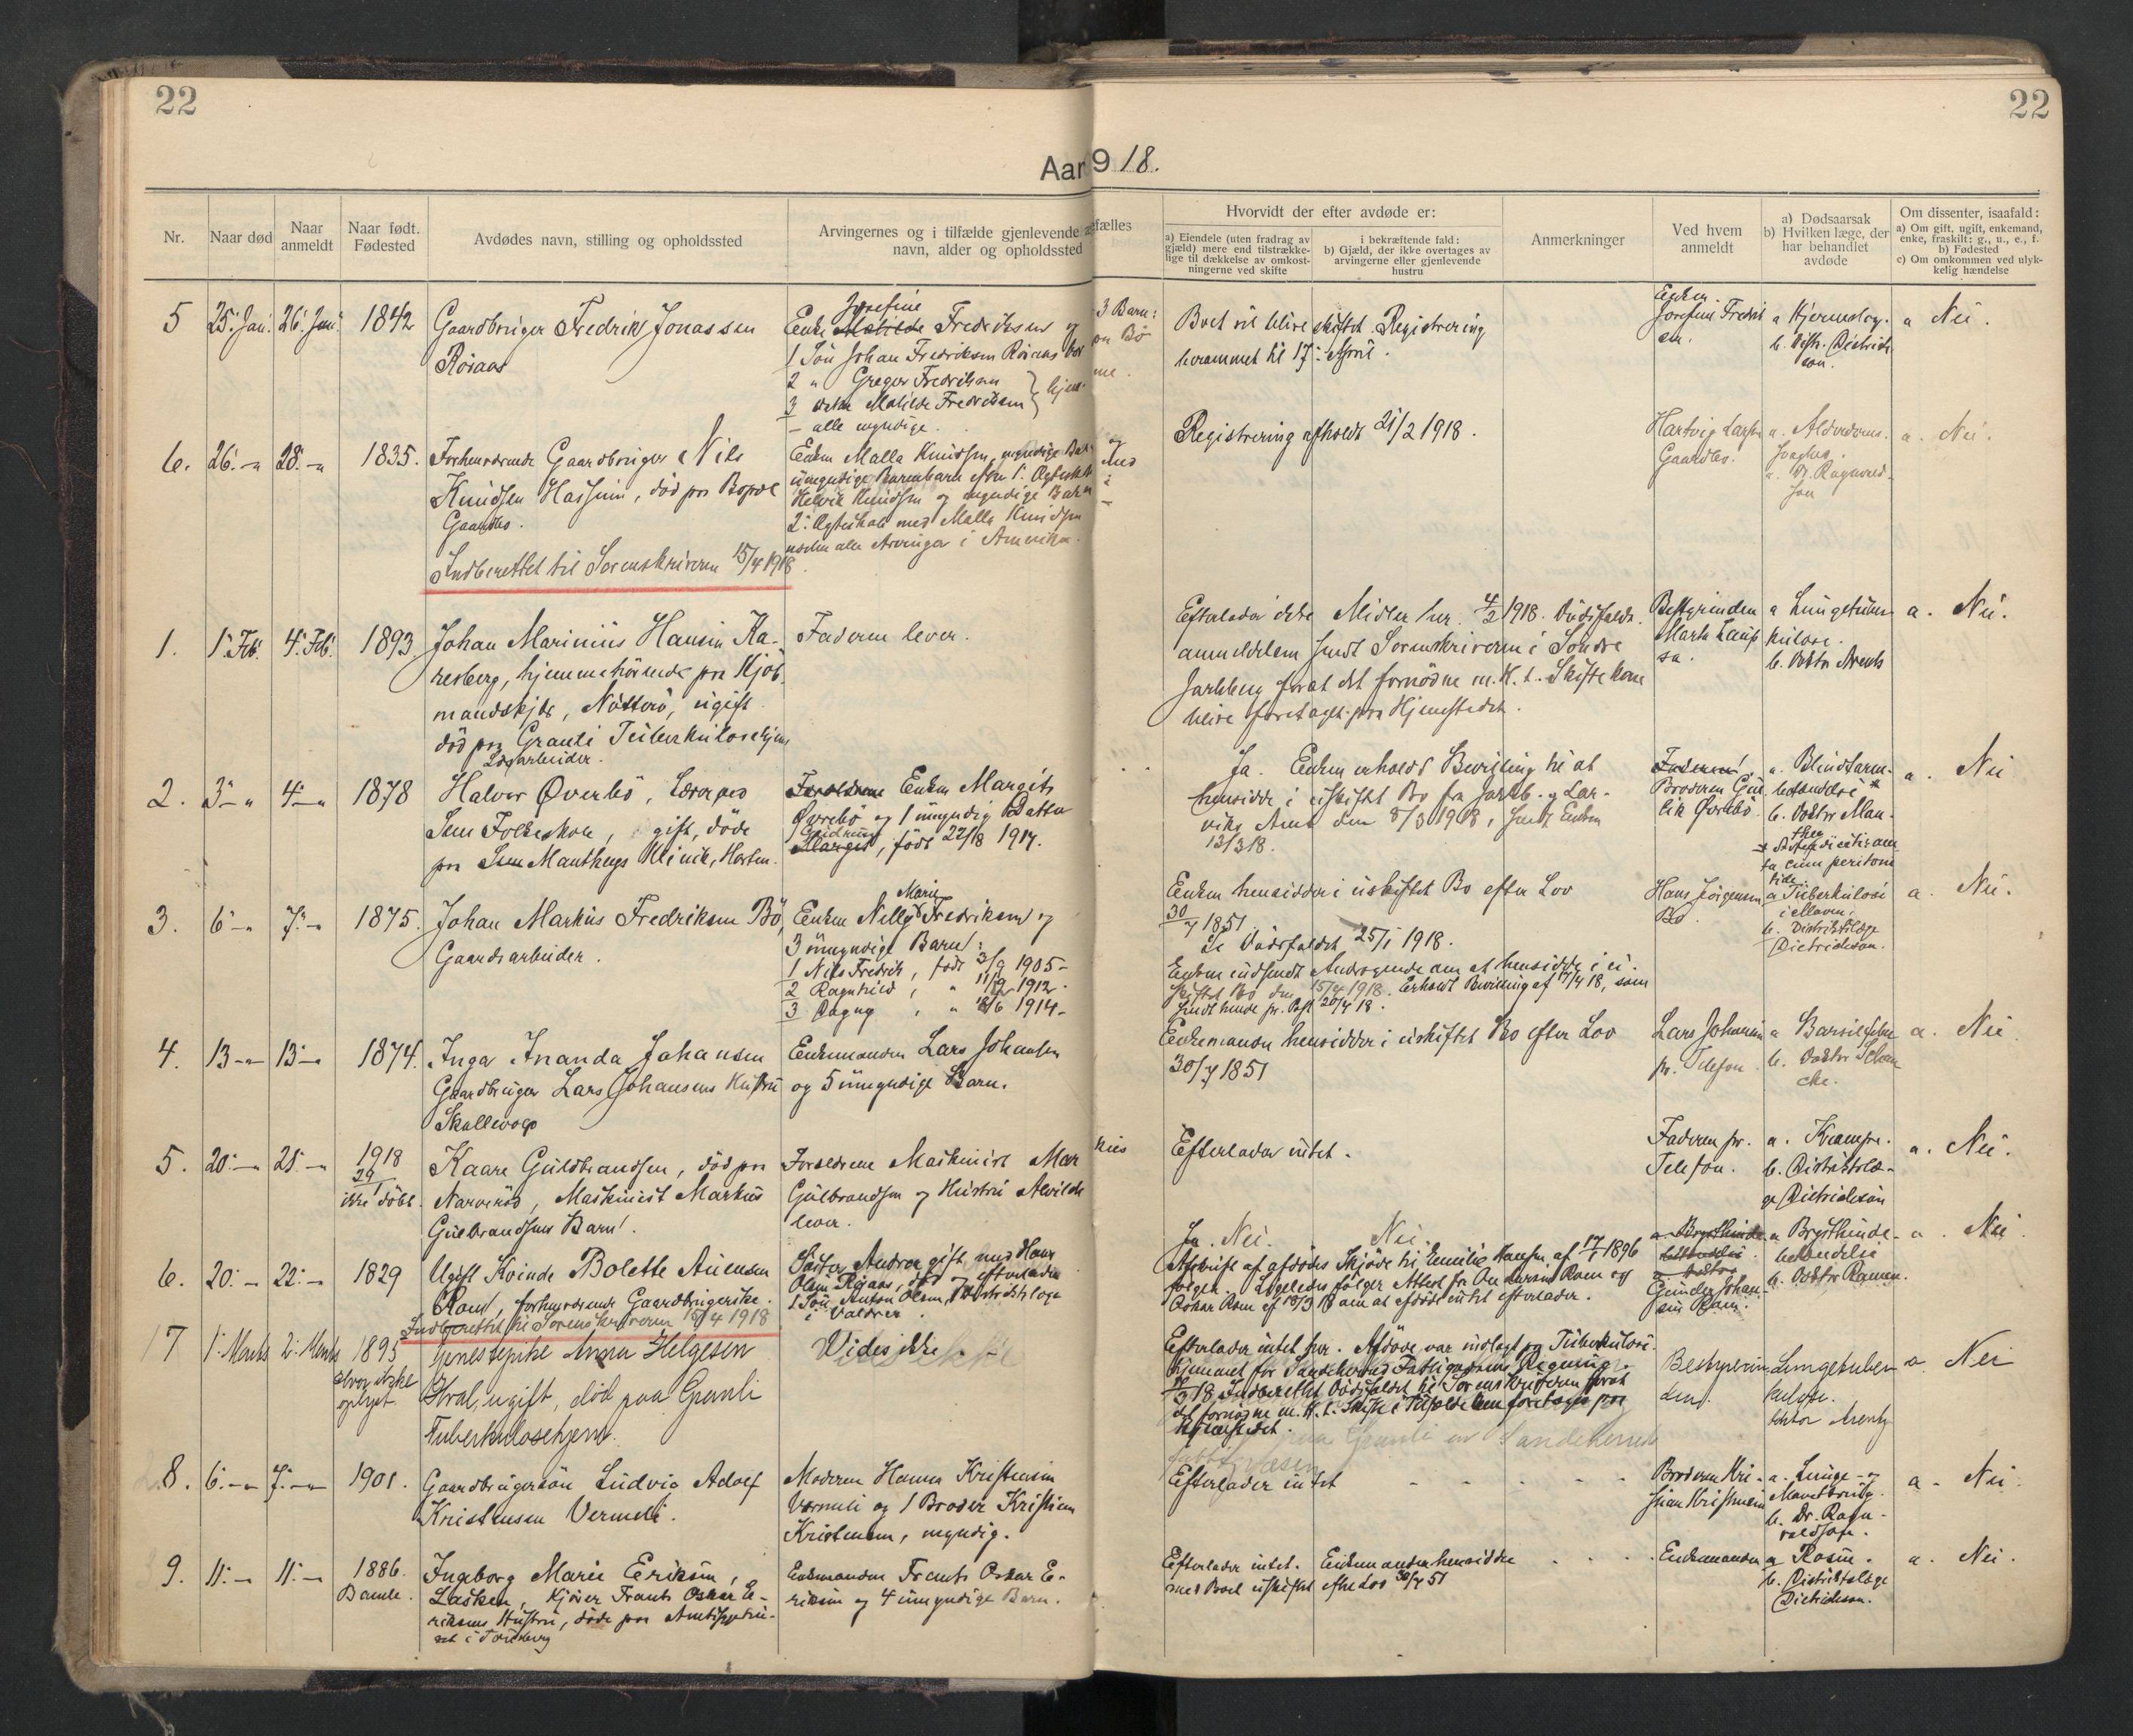 22
22
Aar 918.
Nr.
Naar død
Naar anmeldt
Naar født. Fødested
Avdødes navn, stilling og opholdssted
Arvingernes og i tilfælde gjenlevende
navn, alder og opholdssted
efælles
Hvorvidt der efter avdøde er:
a) Eiendele (uten fradrag av gjæld) mere end tilstrækkelige til dækkelse av omkostningerne ved skifte
i bekræftende fald:
b) Gjæld, der ikke overtages av arvingerne eller gjenlevende hustru
Anmerkninger
Ved hvem anmeldt
a) Dødsaarsak
b) Hvilken læge, der har behandlet avdøde
Om dissenter, isaafald:
a) Om gift, ugift, enkemand, enke, fraskilt: g., u., e., f.
b) Fødested
c) Om omkommen ved ulykkelig hændelse
5 25. Jan. 26. Jan. 1842
Gaardbruger Fredrik Jonassen
Röiaas
Josefine
Enke Matilde Fredriksen og
3 Barn:
1 Sön Johan Fredriksen Röiaas
2 " Greger Fredriksen
3 Matilde Fredriksen
– alle myndige.
Boet vil blive skiftet. Registrering
berammet til 17. April.
Enken
Josefine Fredriksen.
a Hjerneslag.
b. Distr. Dietrichson.
a Nei.
6. 26. – " 28. – " 1835.
Forhenværende Gaardbruger Nils
Knudsen Hassum, död paa Bopæl
Gaardbo.
Indberettet til Sorenskriveren 15/4 1918
Enken Malla Knudsen, myndige
umyndige Barnebarn efter 1. Ægteskab
Knudsen og myndige Barn
2. Ægteskab med Malla Knudsen
alle Arvinger i Amerika.
Registrering afholdt 21/2 1918.
Hartvig Larsen
Gaardbo.
a. Alderdomssvaghed.
Dr. Ragnvaldson
a. Nei.
1. 1. Feb. 4. Feb. 1893
Johan Marinius Hansen Karesberg,
hjemmehörende paa Kjöbmandskjær,
Nötterö, ugift
död paa Granli Tuberkulosehjem
Faderen lever.
Efterlader ikke Midler her. 4/2 1918. Dödsfaldsanmeldelsen
sendt Sorenskriveren i Söndre
Jarlsberg forat det fornödne m. H. t. Skifte kan
blive foretaget paa Hjemstedet.
Bestyrerinden
Marta
a Lungetuberkulose.
b. Doktor Arentz
a. Nei.
2. 3. – " 4. – " 1878
Halvor Øverbö, Lærer ved
Sem Folkeskole, gift, döde
paa Sem Mantheys Klinik, Horten.
Forældrene Enken Margit
Øvrebö og 1 umyndig Datter
Gudrun
Margit, født 22/8 1917.
Ja. Enken erholdt Bevilling til at
hensidde i uskiftet Bo fra Jarlsb. og Larviks
Amt den 8/3 1918, sendt Enken
13/3 18.
Faderen
Broderen
Øvrebö
a. Blindtarmbetændelse *
b. Doktor Manthey
cum peritonitide.
a. Nei
3. 6. – " 7. – " 1875.
Johan Markus Fredriksen Bö,
Gaardsarbeider.
Marie
Enken Nelly Fredriksen og
3 umyndige Barn:
1 Nils Fredrik, født 3/9 1905 –
2 Ragnhild, " 11/2 1912 –
3 Dagny, " 18/6 1914 –
Enken hensidder i uskiftet Bo efter Lov
30/7 1851
Se Dödsfaldet 25/1 1918.
Enken indsendt Andragende om at hensidde i uskiftet
Bo den 15/4 1918. Erholdt Bevilling af 17/4 18, som
sendt hende pr. Post 20/4 18.
Hans Jörgensen
Bö.
a Tuberkulose
i Maven.
b. Distriktslæge
Dietrichson.
a Nei.
4. 13 – " 13. – " 1874.
Inga Ananda Johansen
Gaardbruger Lars Johansens Hustru
Skallevold
Enkemanden Lars Johansen
og 5 umyndige Barn.
Enkemanden hensidder i uskiftet Bo efter Lov
30/7 1851
Lars Johansen
pr. Telefon.
a Barselfeber
b. Doktor Schancke.
a. Nei.
5. 20. – " 21. – " 1918
ikke döbt.
Kaare Guldbrandsen, död paa
Narveröd, Maskinist Markus
Gulbrandsens Barn.
Forældrene Maskinist Markus
Gulbrandsen og Hustru Alvilde
lever.
Efterlader intet.
Faderen pr.
Telefon.
a. Krampe.
b. Distriktslæge
Dietrichson
a. Nei.
6. 20. – 22. – 1829
Ugift Kvinde Bolette Auensen
Ram, forhenværende Gaardbrugerske.
Indberettet til Sorenskriveren 15/4 1918
Söster Andrea gift med Hans
Olsen Röiaas, död og efterlader
1 Sön Anton Olsen, Distriktslæge
i Valdres.
Ja. Nei. Nei
Afskrift af afdödes Skjöde til Emilie Hansen af 17/1 1896
fölger. Ligeledes fölger Attest fra Ram og
Oskar Ram af 18/3 18 om at afdöde intet efterlader.
Gunder Johansen
Ram.
a Brysthindebetændelse
b. Doktor Ramm.
a. Nei.
7 1. Marts 2. Marts 1895
hvor ikke
oplyst
Tjenestepike Anna Helgesen
Hval, ugift, död paa Granli
Tuberkulosehjem.
Vides ikke. –
Efterlader intet her. Afdöde var indlagt paa Tuberkulosehjemmet
for Sandeherreds Fattigvæsens Regning.
Indberettet Dödsfaldet til Sorenskriveren forat
det fornödne m. H. t. Skifte i Tilfælde kan foretages paa
Hjemstedet.
paa Granli av Sandeherred
fattigvæsen
Bestyrerinden.
Lungetuberkulose.
doktor Arentz
a. Nei
8. 6. – " 7. – " 1901.
Gaardbrugersön Ludvig Adolf
Kristensen Vermeli.
Moderen Hanna Kristensen
Vermeli og 1 Broder Kristian
Kristensen, myndig.
Efterlader intet
Broderen Kristian
Kristensen
a. Lunge- og
b. Dr. Ragnvaldson.
a – Nei.
9. 11. – 11. – 1886.
Bamle.
Ingeborg Marie Eriksen,
Lasken, Kjörer Frants Oskar Eriksens
Hustru, döde paa Amtssygehuset
i Tönsberg
Enkemanden Frants Oskar Eriksen
og 4 umyndige Barn.
Efterlader intet. Enkemanden hensidder
med Boet uskiftet efter Lov 30/7 51
Enkemanden
a Rosen.
b. Distriktslæge
Dietrichson.
a. Nei.